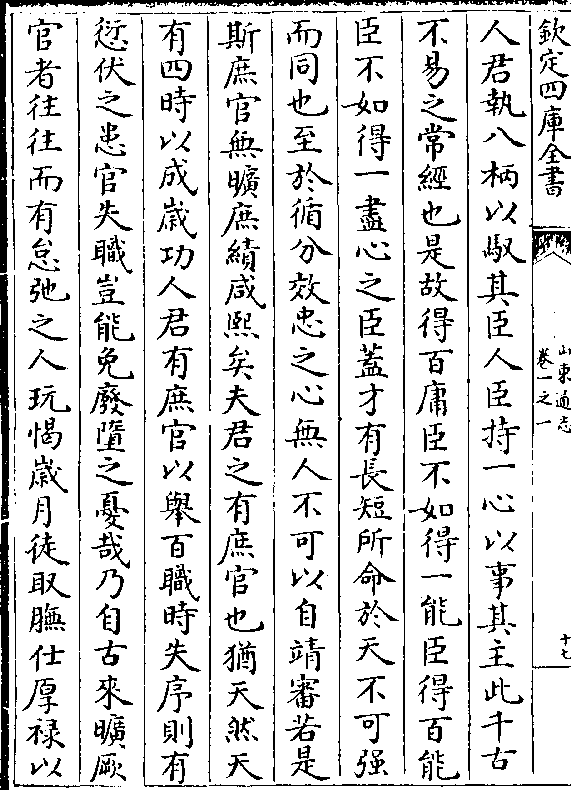 欽定四庫全書
山東通志
卷一之一
十七
人君執八柄以馭其臣人臣持一心以事其主此千古
不易之常經也是故得百庸臣不如得一能臣得百能
臣不如得一盡心之臣蓋才有長短所命於天不可强
而同也至於循分效忠之心無人不可以自靖審若是
斯庶官無曠庶績咸熙矣夫君之有庶官也猶天然天
有四時以成歲功人君有庶官以舉百職時失序則有
愆伏之患官失職豈能免廢墮之憂哉乃自古來曠厥
官者往往而有怠弛之人玩愒歲月徒取膴仕厚禄以